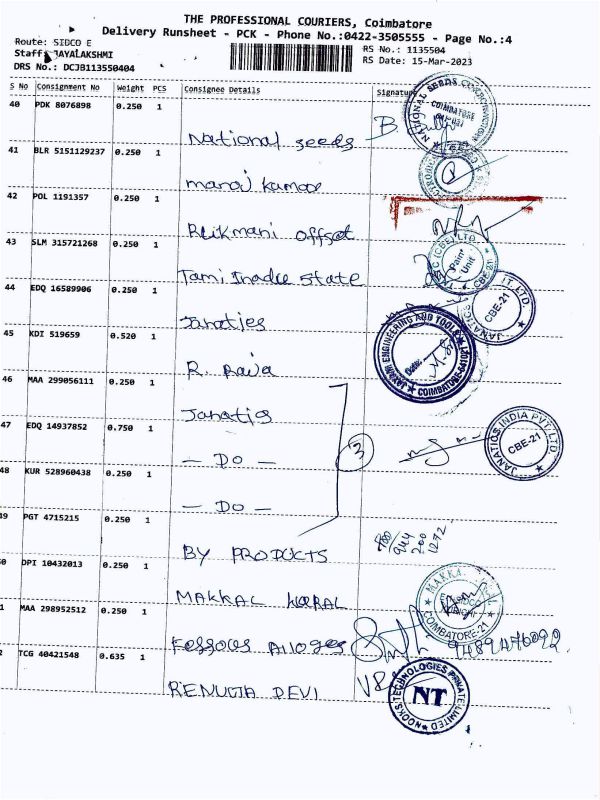 THE PROFESSIONAL COURIERS, Coimbatore
Delivery Runsheet - PCK - Phone No.:0422-3505555 - Page No.:4
Route: SIDCO E
Staff: JAYALAKSHMI
DRS No.: DCJB113550404
RS No.: 1135504
RS Date: 15-Mar-2023
S No Consignment No Weight PCS Consignee Details Signature
40 PDK 8076898 0.250 1
National seeds
41 BLR 5151129237 0.250 1
manoj kumar
42 POL 1191357 0.250 1
Rukmani offset
43 SLM 315721268 0.250 1
Tamilnadu state
44 EDQ 16589906 0.250 1
Janatics
45 KDI 519659 0.520 1
R. Raja
46 MAA 299056111 0.250 1
Janatics
47 EDQ 14937852 0.750 1
- DO -
3
48 KUR 528960438 0.250 1
- DO -
49 PGT 4715215 0.250 1
BY PRODUCTS
0 DPI 10432013 0.250 1
MAKKAL KURAL
1 MAA 298952512 0.250 1
Ferrous Alloges
9489476092.
2 TCG 40421548 0.635 1
RENUGA DEVI
NATIONAL SEEDS CORPORATION
COIMBATORE
Paint Unit
CBE-21
JANATICS
PVT. LTD.
CBE-21
JAYAM ENGINEERING AND TOOLS
COIMBATORE-641021
JANATICS INDIA PVT. LTD.
CBE-21
MAKKAL
COIMBATORE-21
NOOKS TECHNOLOGIES PRIVATE LIMITED
NT